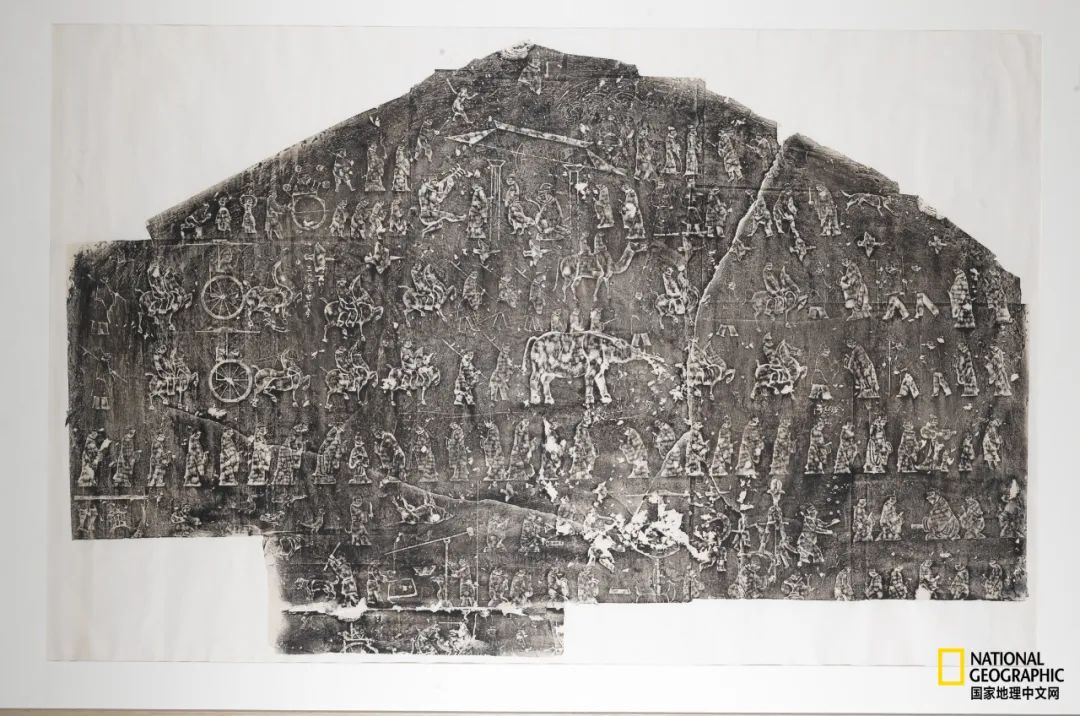 NATIONAL
GEOGRAPHIC
国家地理中文网